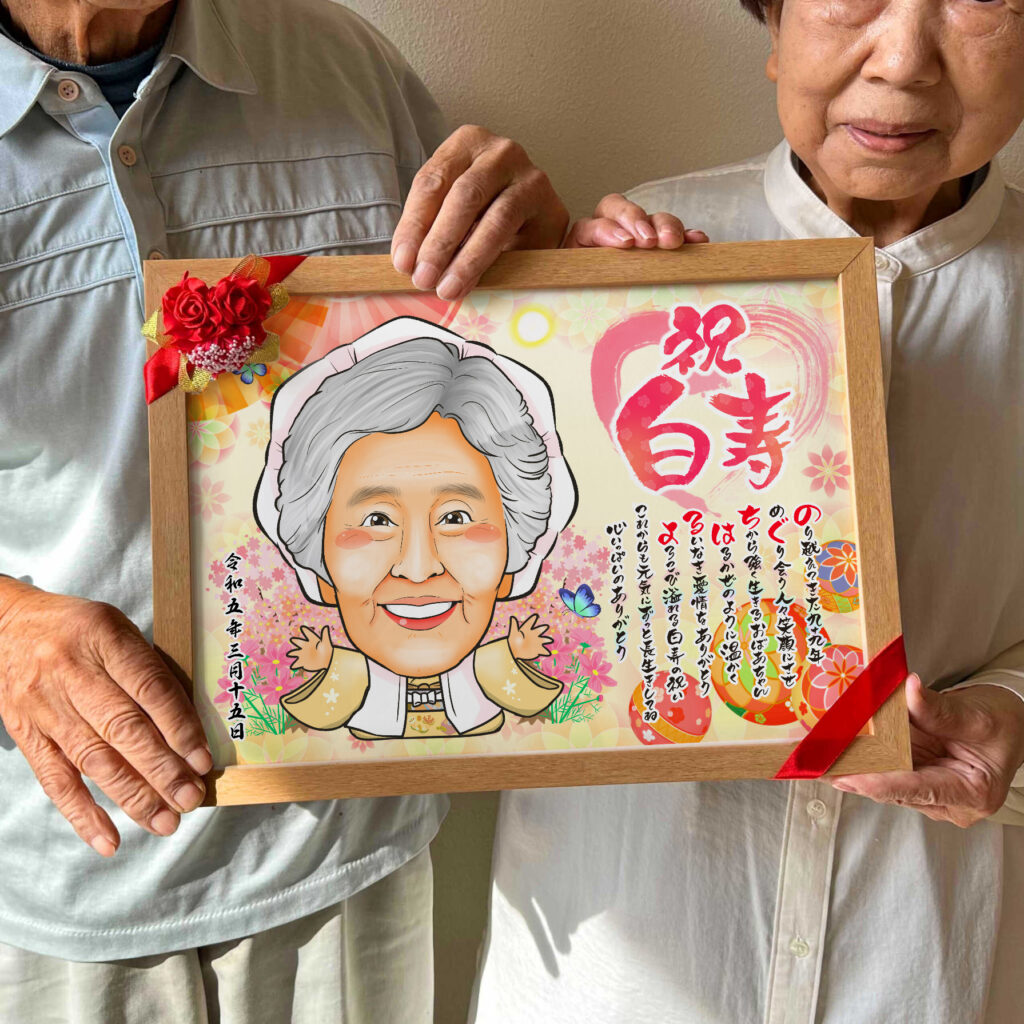 祝
白寿
のり越えてきた九十九年
めぐり合う人々笑顔にさせ
ちから強く生きるおばあちゃん
はるかぜのように温かく
るいなき愛情をありがとう
よろこび溢れる白寿の祝い
これからも元気にずっと長生きしてね
心いっぱいのありがとう
令和五年三月十五日